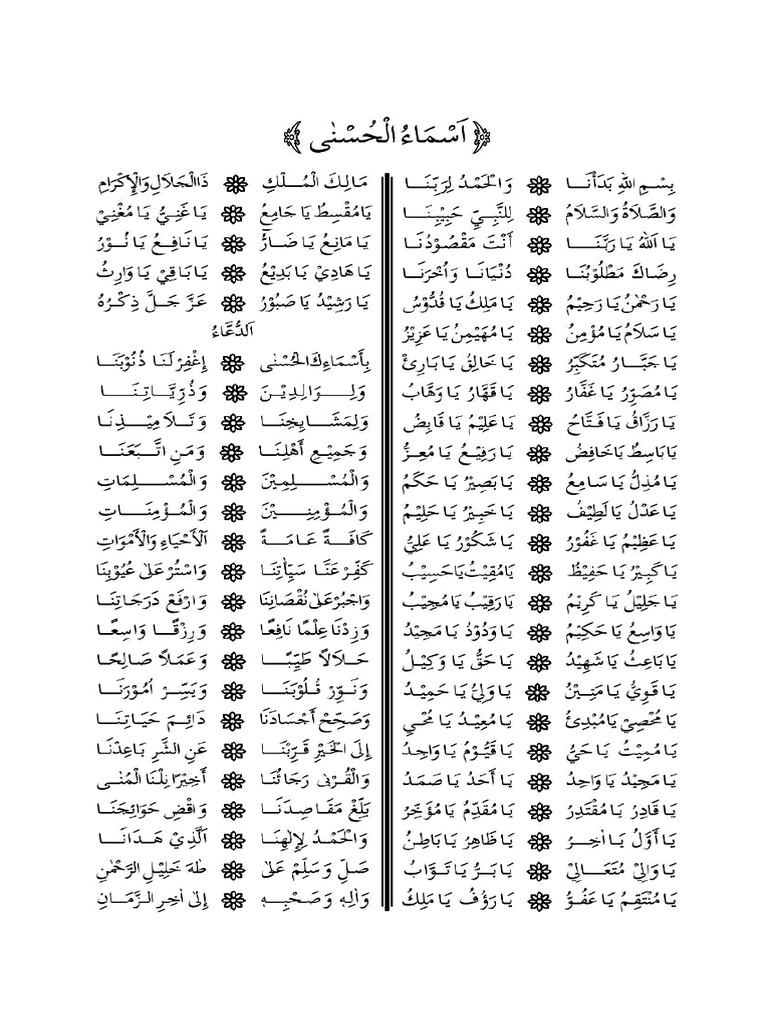 ﴿ اَسْمَاءُ الْحُسْنٰى ﴾
بِسْمِ اللهِ بَدَأْنَا ❁ وَالْحَمْدُ لِرَبِّنَا
وَالصَّلَاةُ وَالسَّلَامُ ❁ لِلنَّبِيِّ حَبِيْبِنَا
يَا اَللهُ يَا رَبَّنَا ❁ أَنْتَ مَقْصُوْدُنَا
رِضَاكَ مَطْلُوْبُنَا ❁ دُنْيَانَا وَأُخْرَنَا
يَا رَحْمٰنُ يَا رَحِيْمُ ❁ يَا مَلِكُ يَا قُدُّوْسُ
يَا سَلَامُ يَا مُؤْمِنُ ❁ يَا مُهَيْمِنُ يَا عَزِيْزُ
يَا جَبَّارُ مُتَكَبِّرُ ❁ يَا خَالِقُ يَا بَارِئُ
يَا مُصَوِّرُ يَا غَفَّارُ ❁ يَا قَهَّارُ يَا وَهَّابُ
يَا رَزَّاقُ يَا فَتَّاحُ ❁ يَا عَلِيْمُ يَا قَابِضُ
يَا بَاسِطُ يَا خَافِضُ ❁ يَا رَفِيْعُ يَا مُعِزُّ
يَا مُذِلُّ يَا سَامِعُ ❁ يَا بَصِيْرُ يَا حَكَمُ
يَا عَدْلُ يَا لَطِيْفُ ❁ يَا خَبِيْرُ يَا حَلِيْمُ
يَا عَظِيْمُ يَا غَفُوْرُ ❁ يَا شَكُوْرُ يَا عَلِيُّ
يَا كَبِيْرُ يَا حَفِيْظُ ❁ يَا مُقِيْتُ يَا حَسِيْبُ
يَا جَلِيْلُ يَا كَرِيْمُ ❁ يَا رَقِيْبُ يَا مُجِيْبُ
يَا وَاسِعُ يَا حَكِيْمُ ❁ يَا وَدُوْدُ يَا مَجِيْدُ
يَا بَاعِثُ يَا شَهِيْدُ ❁ يَا حَقُّ يَا وَكِيْلُ
يَا قَوِيُّ يَا مَتِيْنُ ❁ يَا وَلِيُّ يَا حَمِيْدُ
يَا مُحْصِيْ يَا مُبْدِئُ ❁ يَا مُعِيْدُ يَا مُحْيِ
يَا مُمِيْتُ يَا حَيُّ ❁ يَا قَيُّوْمُ يَا وَاجِدُ
يَا مَجِيْدُ يَا وَاحِدُ ❁ يَا أَحَدُ يَا صَمَدُ
يَا قَادِرُ يَا مُقْتَدِرُ ❁ يَا مُقَدِّمُ يَا مُؤَخِّرُ
يَا أَوَّلُ يَا اٰخِرُ ❁ يَا ظَاهِرُ يَا بَاطِنُ
يَا وَالِيْ مُتَعَالِيْ ❁ يَا بَرُّ يَا تَوَّابُ
يَا مُنْتَقِمُ يَا عَفُوُّ ❁ يَا رَؤُفُ يَا مَلِكُ
مَالِكَ الْمُلْكِ ❁ ذَاالْجَلَالِ وَالْإِكْرَامِ
يَا مُقْسِطُ يَا جَامِعُ ❁ يَا غَنِيُّ يَا مُغْنِيْ
يَا مَانِعُ يَا ضَارُّ ❁ يَا نَافِعُ يَا نُوْرُ
يَا هَادِيْ يَا بَدِيْعُ ❁ يَا بَاقِيْ يَا وَارِثُ
يَا رَشِيْدُ يَا صَبُوْرُ ❁ عَزَّ جَلَّ ذِكْرُهُ
اَلدُّعَاءُ
بِأَسْمَاءِكَ الْحُسْنٰى ❁ إِغْفِرْ لَنَا ذُنُوْبَنَا
وَلِوَالِدِيْنَ ❁ وَذُرِّيَّاتِنَا
وَلِمَشَايِخِنَا ❁ وَتَلَامِيْذِنَا
وَجَمِيْعِ أَهْلِنَا ❁ وَمَنِ اتَّبَعَنَا
وَالْمُسْلِمِيْنَ ❁ وَالْمُسْلِمَاتِ
وَالْمُؤْمِنِيْنَ ❁ وَالْمُؤْمِنَاتِ
كَافَةً عَامَةً ❁ اَلْأَحْيَاءِ وَالْأَمْوَاتِ
كَفِّرْ عَنَّا سَيِّأٰتِنَا ❁ وَاسْتُرْ عَلٰى عُيُوْبِنَا
وَاجْبُرْ عَلٰى نُقْصَانِنَا ❁ وَارْفَعْ دَرَجَاتِنَا
وَزِدْنَا عِلْمًا نَافِعًا ❁ وَرِزْقًا وَاسِعًا
حَلَالًا طَيِّبًا ❁ وَعَمَلًا صَالِحًا
وَنَوِّرْ قُلُوْبَنَا ❁ وَيَسِّرْ اُمُوْرَنَا
وَصَحِّحْ أَجْسَادَنَا ❁ دَائِمَ حَيَاتِنَا
إِلَى الْخَيْرِ قَرِّبْنَا ❁ عَنِ الشَّرِّ بَاعِدْنَا
وَالْقُرْبٰى رَجَائُنَا ❁ أَخِيْرًا نِلْنَا الْمُنٰى
بَلِّغْ مَقَاصِدَنَا ❁ وَاقْضِ حَوَائِجَنَا
وَالْحَمْدُ لِإِلٰهِنَا ❁ اَلَّذِيْ هَدَانَا
صَلِّ وَسَلِّمْ عَلٰى ❁ طٰهَ خَلِيْلِ الرَّحْمٰنِ
وَاٰلِهِ وَصَحْبِهِ ❁ إِلٰى اٰخِرِ الزَّمَانِ